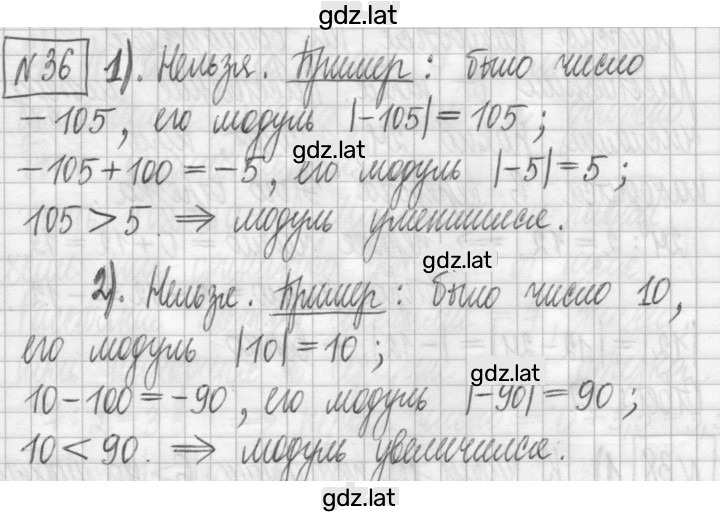 gdz.lat
№36 1). Нельзя. Пример: было число
-105, его модуль |-105| = 105;
gdz.lat
-105+100 = -5, его модуль |-5| = 5;
105 > 5. ⇒ модуль уменьшился.
gdz.lat
2). Нельзя. Пример: было число 10,
его модуль |10| = 10;
gdz.lat
10-100 = -90, его модуль |-90| = 90;
10 < 90. ⇒ модуль увеличился.
gdz.lat